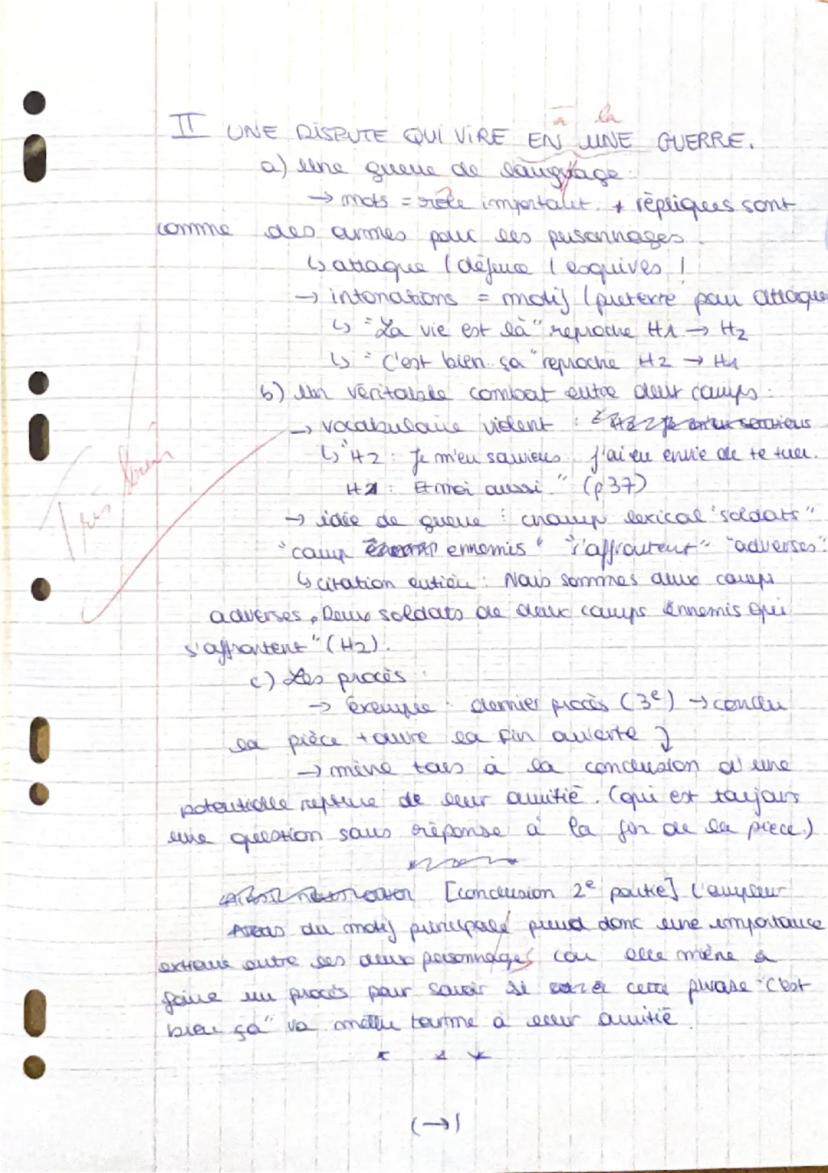 à la
II UNE DISPUTE QUI VIRE EN UNE GUERRE.
a) Une guerre de language.
→ mots = rôle important. + répliques sont
comme des armes pour les personnages.
↳ attaque / défence / esquives !
→ intonations = motif / pretexte pour attaque
↳ "La vie est là" reproche H1 → H2
↳ "C'est bien ça" reproche H2 → H1
b) Un véritable combat entre deux camps :
→ vocabulaire violent :
↳ "H2 : Je m'en souviens j'ai eu envie de te tuer.
H1 : Et moi aussi." (p37)
→ idée de guerre : champ lexical "soldats"
"camp ennemis" "s'affrontent" "adverses".
↳ citation entière : Nous sommes deux camps
adverses. Deux soldats de deux camps ennemis qui
s'affrontent" (H2).
c) Les procès :
→ exemple : dernier procès (3e) → conclu
la pièce + ouvre la fin ouverte ↓
→ mène tous à la conclusion d'une
potentielle rupture de leur amitié. (qui est toujours
une question sans réponse à la fin de la pièce.)
[conclusion 2e partie] L'ampleur
du motif principale prend donc une importance
extreme entre les deux personnages car elle mène à
faire un procès pour savoir si cette phrase "C'est
bien ça" va mettre terme à leur amitié.
* * *
(→)
Très bien